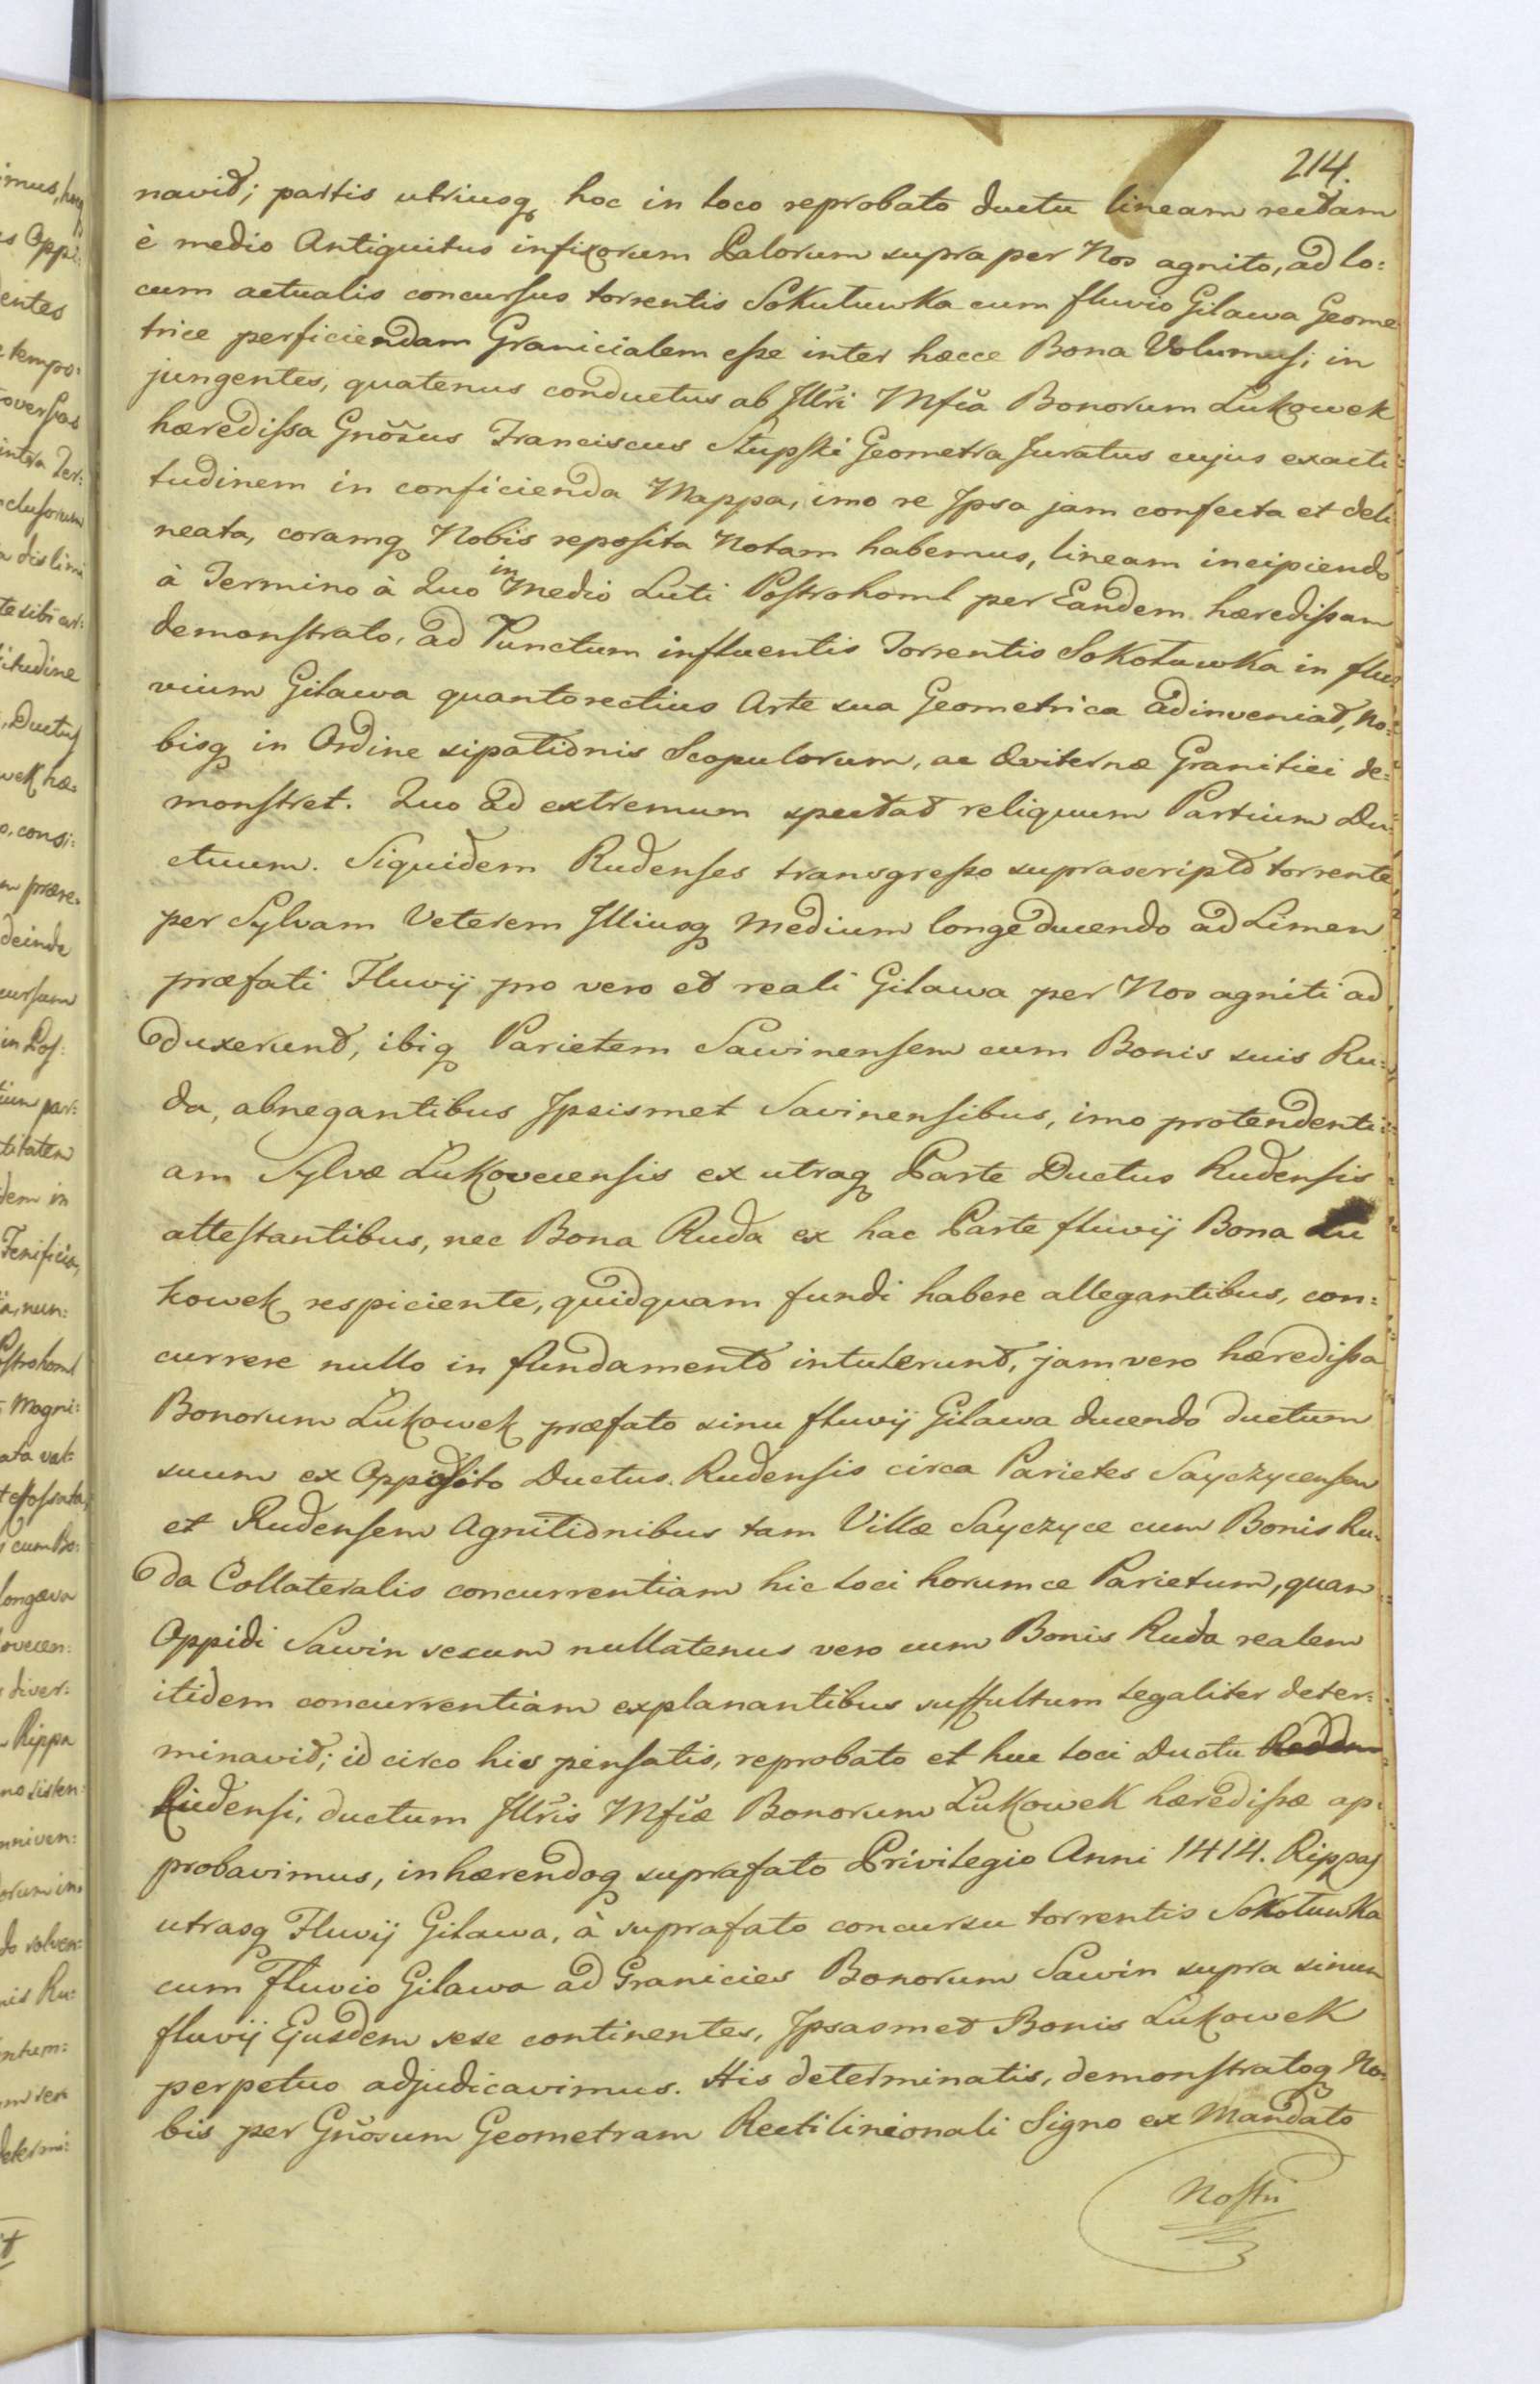 214.
navit; partis utriusq hoc in loco reprobato ductu lineam rectam
è medio Antiquitus infixorum Palorum supra per Nos agnito, ad lo:
cum actualis concursus torrentis Sokutuwka cum fluvio Gilawa Geome
trice perficiendam Granicialem esse inter hæcce Bona Volumus; in
jungentes, quatenus conductus ab Illri Mfica Bonorum Lukowek
hæredissa Gnosus Franciscus Stupski Geometra Juratus cujus exacti
tudinem in conficienda Mappa, imo re Ipsa jam confecta et deli
neata, coramq Nobis reposita Notam habemus, lineam incipiendo
à Termino à Quo in Medio Luti Postrohoml per Eandem hæredissam
demonstrato, ad Punctum influentis Torrentis Sokotuwka in flu:
vium Gilawa quantorectius Arte sua Geometrica adinveniat, No:
bisq in Ordine sipationis Scopulorum, ac Æviternæ Granitiei de:
monstret. Quo ad extremum spectat reliquum Partium Du:
ctuum. Siquidem Rudenses transgresso suprascripto torrente
per Sylvam Veterem Illiusq medium longe ducendo ad Limen
præfati Fluvij pro vero et reali Gilawa per Nos agniti ad
duxerunt, ibiq Parietem Sawinensem cum Bonis suis Ru:
da, abnegantibus Ipsismet Savinensibus, imo protendenti:
am Sylvæ Lukoveciensis ex utraq Parte Ductus Rudensis
attestantibus, nec Bona Ruda ex hac Parte fluvij Bona Lu
kowek respiciente, quidquam fundi habere allegantibus, con:
currere nullo in fundamento intulerunt, jam vero hæredissa
Bonorum Lukowek præfato sinu fluvij Gilawa ducendo ductum
suum ex Opposito Ductus Rudensis circa Parietes Sayczycensem
et Rudensem Agnitionibus tam Villæ Sayczyce cum Bonis Ru:
da Collateralis concurrentiam hic loci horumce Parietum, quam
Oppidi Sawin secum nullatenus vero cum Bonis Ruda realem
itidem concurrentiam explanantibus suffultum legaliter deter:
minavit; id circo his pensatis, reprobato et huc loci Ductu
Rudensi, ductum Illris Mficæ Bonorum Lukowek hæredissæ ap:
probavimus, inhærendoq suprafato Privilegio Anni 1414. Rippas
utrasq Fluvij Gilawa, à suprafato concursu torrentis Sokotuwka
cum Fluvio Gilawa ad Granicies Bonorum Sawin supra sinum
fluvij Ejusdem sese continentes, Ipsasmet Bonis Lukowek
perpetuo adjudicavimus. His determinatis, demonstratoq No:
bis per Gnosum Geometram Rectilineonali Signo ex Mandato
Nostri